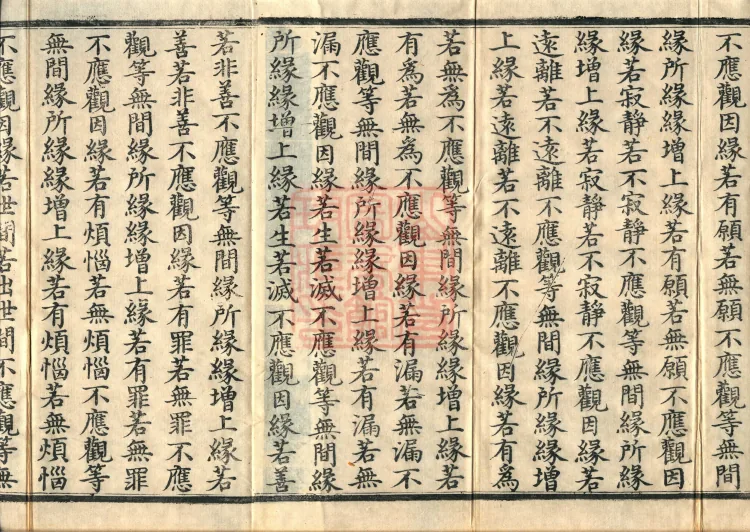 不應觀因緣若有願若無願不應觀等無間
緣所緣緣增上緣若有願若無願不應觀因
緣若寂靜若不寂靜不應觀等無間緣所緣
緣增上緣若寂靜若不寂靜不應觀因緣若
遠離若不遠離不應觀等無間緣所緣緣增
上緣若遠離若不遠離不應觀因緣若有為
若無為不應觀等無間緣所緣緣增上緣若
有為若無為不應觀因緣若有漏若無漏不
應觀等無間緣所緣緣增上緣若有漏若無
漏不應觀因緣若生若滅不應觀等無間緣
所緣緣增上緣若生若滅不應觀因緣若善
若非善不應觀等無間緣所緣緣增上緣若
善若非善不應觀因緣若有罪若無罪不應
觀等無間緣所緣緣增上緣若有罪若無罪
不應觀因緣若有煩惱若無煩惱不應觀等
無間緣所緣緣增上緣若有煩惱若無煩惱
不應觀因緣若世間若出世間不應觀等無